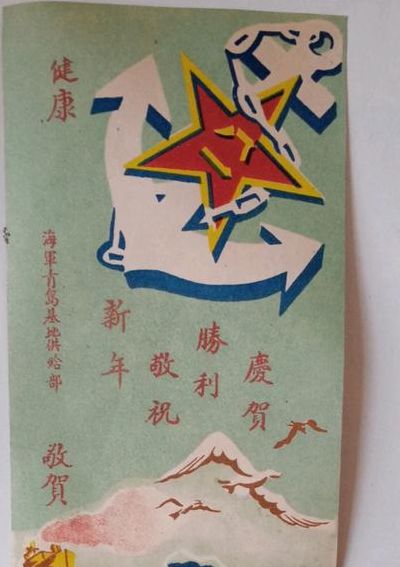 慶賀
勝利
敬祝
新年
健康
海軍青島基地供給部
敬賀